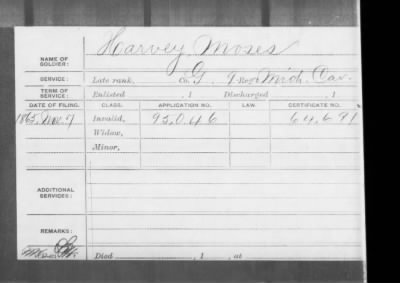 NAME OF SOLDIER: Harvey, Moses
SERVICE: Late rank, Co. G, 9 Reg't Mich. Cav.
TERM OF SERVICE: Enlisted , 1 Discharged , 1
DATE OF FILING. CLASS. APPLICATION NO. LAW. CERTIFICATE NO.
1865 Nov. 7 Invalid, 95,046 64,691
Widow,
Minor,
ADDITIONAL SERVICES:
REMARKS:
Died , 1 , at